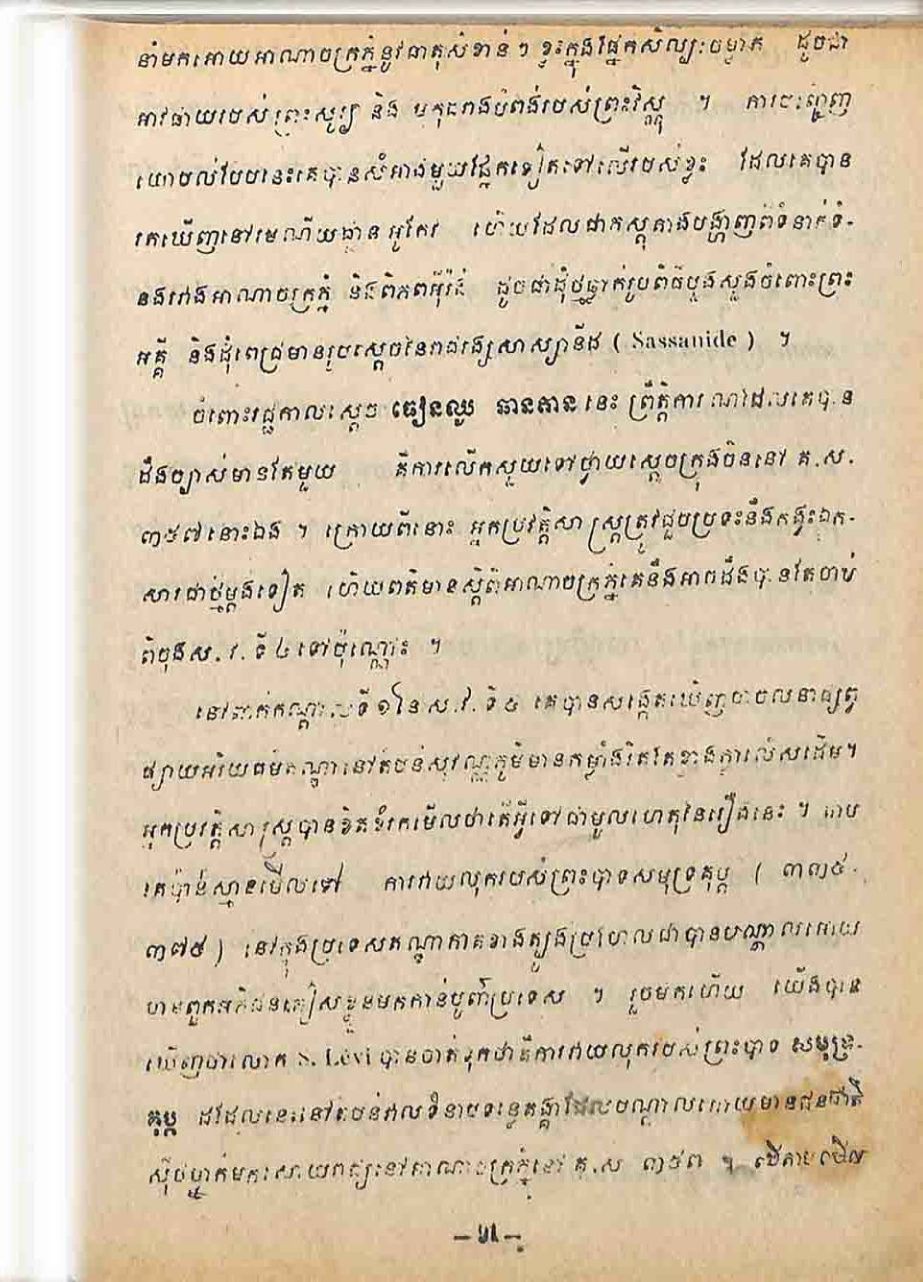 នាំមកអោយអាណាចក្រភ្នំនូវធាតុសំខាន់ៗ ខ្លះក្នុងផ្នែកសិល្បៈចម្លាក់ ដូចជា
អាវធាយរបស់ព្រះសូរ្យ និង មកុដរាងបំពង់របស់ព្រះវិស្ណុ ។ ការបញ្ចេញ
យោបល់បែបនេះគេបានសំអាងមួយផ្នែកទៀតទៅលើរបស់ខ្លះ ដែលគេបាន
រកឃើញនៅរមណីយដ្ឋាន អូរកែវ ហើយដែលជាភស្តុតាងបង្ហាញពីទំនាក់ទំ-
នងរវាងអាណាចក្រភ្នំ និងពិភពអ៊ីរ៉ង់ ដូចជាដុំថ្មឆ្លាក់រូបពិធីបួងសួងចំពោះព្រះ
អគ្គី និងដុំពេជ្រមានរូបស្តេចនៃរាជវង្សសាស្សានីដ ( Sassanide ) ។
ចំពោះរជ្ជកាលស្តេច ធៀនឈូ ឆានតាន នេះ ព្រឹត្តិការណ៍ដែលគេបាន
ដឹងច្បាស់មានតែមួយ គឺការលើកសួយទៅថ្វាយស្តេចក្រុងចិននៅ គ.ស.
៣៥៧ នោះឯង ។ ក្រោយពីនោះ អ្នកប្រវត្តិសាស្ត្រត្រូវជួបប្រទះនឹងកង្វះឯក-
សារជាថ្មីម្តងទៀត ហើយពត៌មានស្តីពីអាណាចក្រភ្នំគេនឹងអាចដឹងបានតែចាប់
ពីចុងស.វ. ទី ៤ ទៅប៉ុណ្ណោះ ។
នៅពាក់កណ្តាលទី ១ នៃ ស.វ. ទី ៥ គេបានសង្កេតឃើញថាចលនាផ្សព្វ
ផ្សាយអរិយធម៌ឥណ្ឌានៅតំបន់សុវណ្ណភូមិមានកម្លាំងរឹតតែខ្លាំងក្លាលើសដើម។
អ្នកប្រវត្តិសាស្ត្របានខិតខំរកមើលថាតើអ្វីទៅជាមូលហេតុនៃរឿងនេះ ។ តាម
គេប៉ាន់ស្មានមើលទៅ ការវាយលុករបស់ព្រះបាទសមុទ្រគុប្ត ( ៣៣៥-
៣៧៥ ) នៅក្នុងប្រទេសឥណ្ឌាភាគខាងត្បូងប្រហែលជាបានបណ្តាលអោយ
មានពួកអភិជនភៀសខ្លួនមកកាន់បូព៌ាប្រទេស ។ រួចមកហើយ យើងបាន
ឃើញថាលោក S. Lévi បានចាត់ទុកថាគឺការវាយលុករបស់ព្រះបាទ សមុទ្រ-
គុប្ត ដដែលនេះនៅតំបន់វាលទំនាបទន្លេគង្គាដែលបណ្តាលអោយមានជនជាតិ
ស៊ីបម្នាក់មកសោយរាជ្យនៅអាណាចក្រភ្នំនៅ គ.ស ៣៥៧ ។ បើតាមមើល
– ៤៤ –